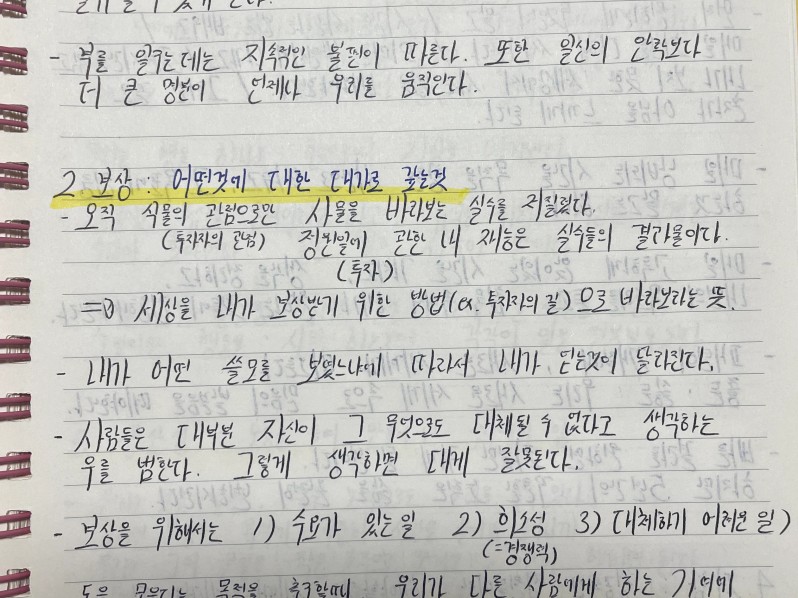 - 부를 일구는데는 지속적인 불편이 따른다. 또한 일신의 안락보다
더 큰 명분이 언제나 우리를 움직인다.
2. 보상 : 어떤것에 대한 대가로 갖는것
- 오직 식물의 관점으로만 사물을 바라보는 실수를 저질렀다.
(투자자의 관점) 정원일에 관한 내 재능은 실수들의 결과물이다.
(투자)
=> 세상을 내가 보상받기 위한 방법(ex. 투자자의 길)으로 바라보라는 뜻.
- 내가 어떤 쓸모를 보였느냐에 따라서 내가 얻는것이 달라진다.
- 사람들은 대부분 자신이 그 무엇으로도 대체될 수 없다고 생각하는
우를 범한다. 그렇게 생각하면 대게 잘못된다.
- 보상을 위해서는 1) 수요가 있는 일 2) 희소성 3) 대체하기 어려운 일)
(=경쟁력)
우리가 다른 사람에게 하는 기여에